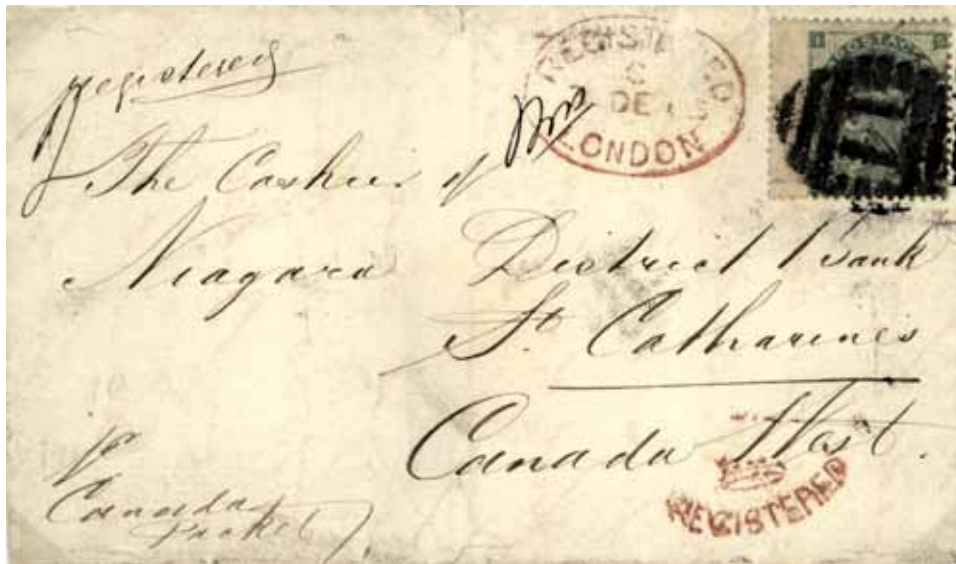 Registered
REGISTERED
6
DE
LONDON
POSTAGE
The Cashier of
Niagara District Bank
St. Catharines
Canada West.
Canada
Packet
REGISTERED